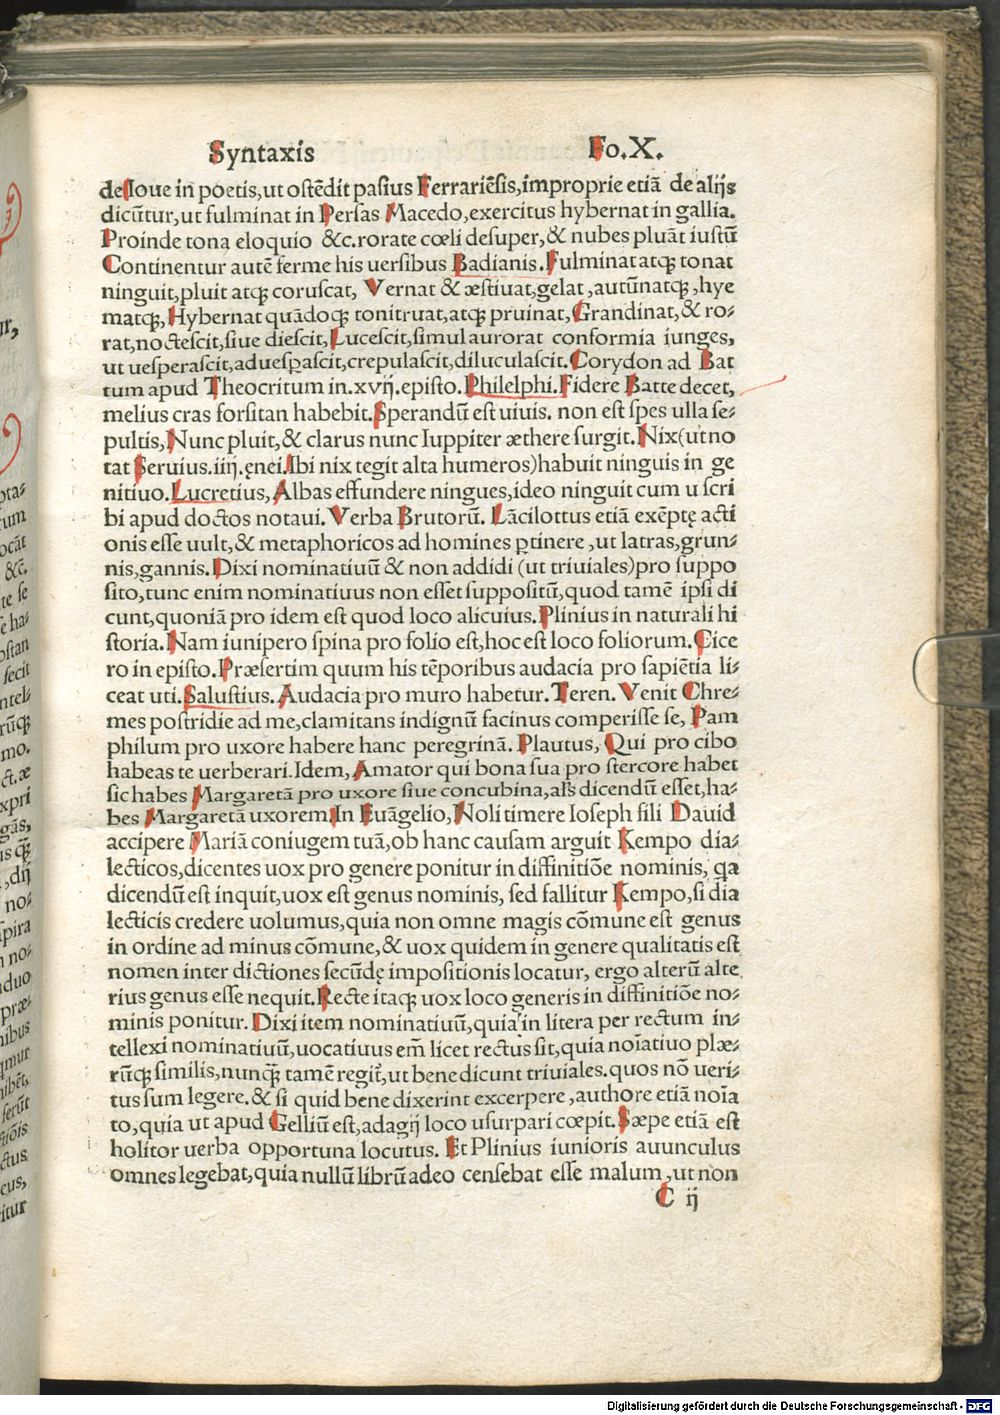 Syntaxis Fo.X.
de Ioue in poetis, ut ostēdit pasius Ferrariēsis, improprie etiā de alijs
dicūtur, ut fulminat in Persas Macedo, exercitus hybernat in gallia.
Proinde tona eloquio &c. rorate cœli desuper, & nubes pluāt iustū
Continentur autē ferme his uersibus Badianis. Fulminat atqꝫ tonat
ninguit, pluit atqꝫ coruscat, Vernat & æstiuat, gelat, autūnatqꝫ, hye
matqꝫ, Hybernat quādoqꝫ tonitruat, atqꝫ pruinat, Grandinat, & ro⸗
rat, noctescit, siue diescit, Lucescit, simul aurorat conformia iunges,
ut uesperascit, aduesꝑascit, crepulascit, diluculascit. Corydon ad Bat
tum apud Theocritum in .xvij. episto. Philelphi. Fidere Batte decet,
melius cras forsitan habebit. Sperandū est uiuis. non est spes ulla se⸗
pultis, Nunc pluit, & clarus nunc Iuppiter æthere surgit. Nix (ut no
tat Seruius .iiij. ęnei. Ibi nix tegit alta humeros) habuit ninguis in ge
nitiuo. Lucretius, Albas effundere ningues, ideo ninguit cum u scri
bi apud doctos notaui. Verba Brutorū. Lācilottus etiā exēptę acti
onis esse uult, & metaphoricos ad homines ꝑtinere, ut latras, grun⸗
nis, gannis. Dixi nominatiuū & non addidi (ut triuiales) pro suppo
sito, tunc enim nominatiuus non esset suppositū, quod tamē ipsi di
cunt, quoniā pro idem est quod loco alicuius. Plinius in naturali hi
storia. Nam iunipero spina pro folio est, hoc est loco foliorum. Cice
ro in episto. Præsertim quum his tēporibus audacia pro sapiētia li⸗
ceat uti. Salustius. Audacia pro muro habetur. Teren. Venit Chre⸗
mes postridie ad me, clamitans indignū facinus comperisse se, Pam
philum pro uxore habere hanc peregrinā. Plautus, Qui pro cibo
habeas te uerberari. Idem, Amator qui bona sua pro stercore habet
sic habes Margaretā pro uxore siue concubina, als dicendū esset, ha⸗
bes Margaretā uxorem, In Euāgelio, Noli timere Ioseph fili Dauid
accipere Mariā coniugem tuā, ob hanc causam arguit Kempo dia⸗
lecticos, dicentes uox pro genere ponitur in diffinitiōe nominis, qa
dicendū est inquit, uox est genus nominis, sed fallitur Kempo, si dia
lecticis credere uolumus, quia non omne magis cōmune est genus
in ordine ad minus cōmune, & uox quidem in genere qualitatis est
nomen inter dictiones secūdę impositionis locatur, ergo alterū alte
rius genus esse nequit. Recte itaqꝫ uox loco generis in diffinitiōe no⸗
minis ponitur. Dixi item nominatiuū, quia in litera per rectum in⸗
tellexi nominatiuū, uocatiuus em̄ licet rectus sit, quia noīatiuo plæ⸗
rūqꝫ similis, nunqꝫ̄ tamē regit̄, ut bene dicunt triuiales. quos nō ueri⸗
tus sum legere. & si quid bene dixerint excerpere, authore etiā noīa
to, quia ut apud Gelliū est, adagij loco usurpari cœpit. Sæpe etiā est
holitor uerba opportuna locutus. Et Plinius iunioris auunculus
omnes legebat, quia nullū librū adeo censebat esse malum, ut non
C ij
Digitalisierung gefördert durch die Deutsche Forschungsgemeinschaft - DFG